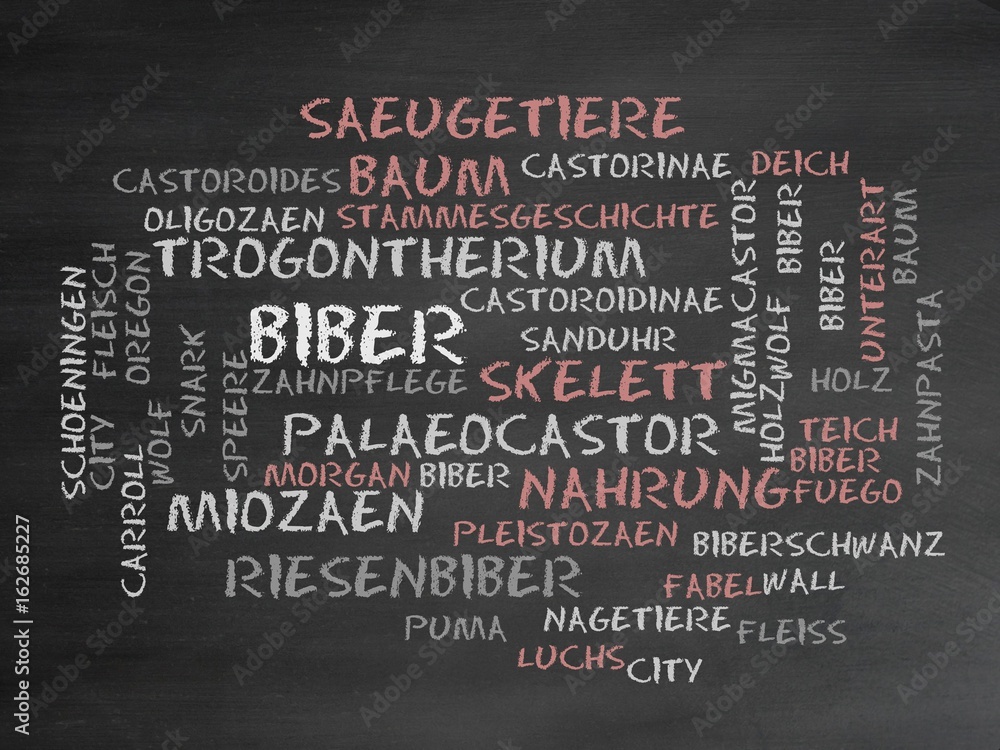 SAEUGETIERE
CASTOROIDES BAUM CASTORINAE DEICH
OLIGOZAEN STAMMESGESCHICHTE
TROGONTHERIUM
MIGMACASTOR
BIBER
UNTERART
BAUM
BIBER
CASTOROIDINAE
BIBER
SANDUHR
SCHOENINGEN
FLEISCH
OREGON
SNARK
SPEERE
ZAHNPFLEGE SKELETT
HOLZ
WOLF
HOLZ
ZAHNPASTA
CITY
WOLF
PALAEOCASTOR
TEICH
BIBER
MORGAN BIBER NAHRUNG FUEGO
CARROLL
MIOZAEN
PLEISTOZAEN
BIBERSCHWANZ
RIESENBIBER
FABEL WALL
PUMA NAGETIERE FLEISS
LUCHS CITY
Adobe Stock | #162685227
Adobe Stock